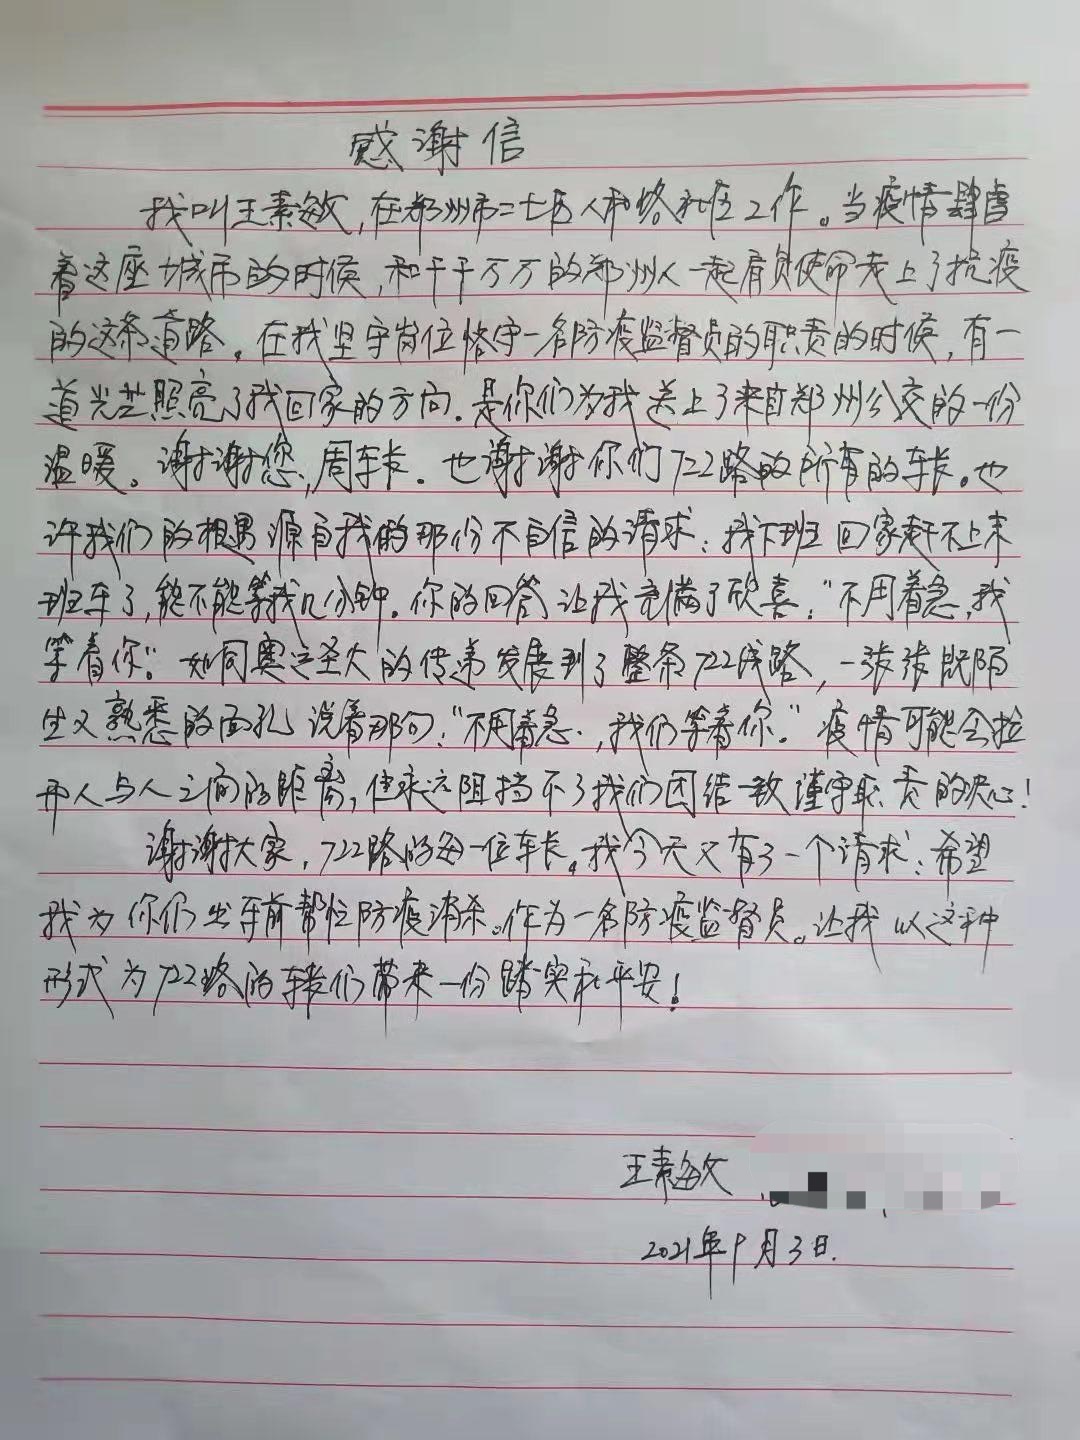 感谢信
我叫王素敏,在郑州市二七区人和路社区工作。当疫情肆虐
着这座城市的时候,和千千万万的郑州人一起肩负使命走上了抗疫
的这条道路。在我坚守岗位恪守一名防疫监督员的职责的时候,有一
道光芒照亮了我回家的方向.是你们为我送上了来自郑州公交的一份
温暖。谢谢您,周车长.也谢谢你们722路的所有的车长。也
许我们的相遇源自我的那份不自信的请求:我下班回家赶不上末
班车了,能不能等我几分钟。你的回答让我充满了欣喜:"不用着急,我
等着你"。如同奥运圣火的传递发展到了整条722线路,一张张既陌
生又熟悉的面孔说着那句:"不用着急,我们等着你。"疫情可能会拉
开人与人之间的距离,但永远阻挡不了我们团结一致谨守职责的决心!
谢谢大家,722路的每一位车长。我今天又有了一个请求:希望
我为你们出车前帮忙防疫消杀。作为一名防疫监督员。让我以这种
形式为722路的车长们带来一份踏实和平安!
王素敏
2021年9月3日.